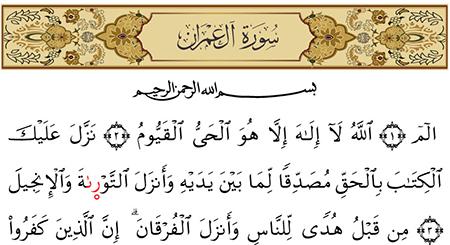 سُورَةُ آلِ عِمْرَان
بِسْمِ اللهِ الرَّحْمٰنِ الرَّحِيمِ
الٓمٓ ﴿١﴾ ٱللَّهُ لَآ إِلَٰهَ إِلَّا هُوَ ٱلْحَىُّ ٱلْقَيُّومُ ﴿٢﴾ نَزَّلَ عَلَيْكَ
ٱلْكِتَٰبَ بِٱلْحَقِّ مُصَدِّقًا لِّمَا بَيْنَ يَدَيْهِ وَأَنزَلَ ٱلتَّوْرَىٰةَ وَٱلْإِنجِيلَ
﴿٣﴾ مِن قَبْلُ هُدًى لِّلنَّاسِ وَأَنزَلَ ٱلْفُرْقَانَ ۗ إِنَّ ٱلَّذِينَ كَفَرُوا۟